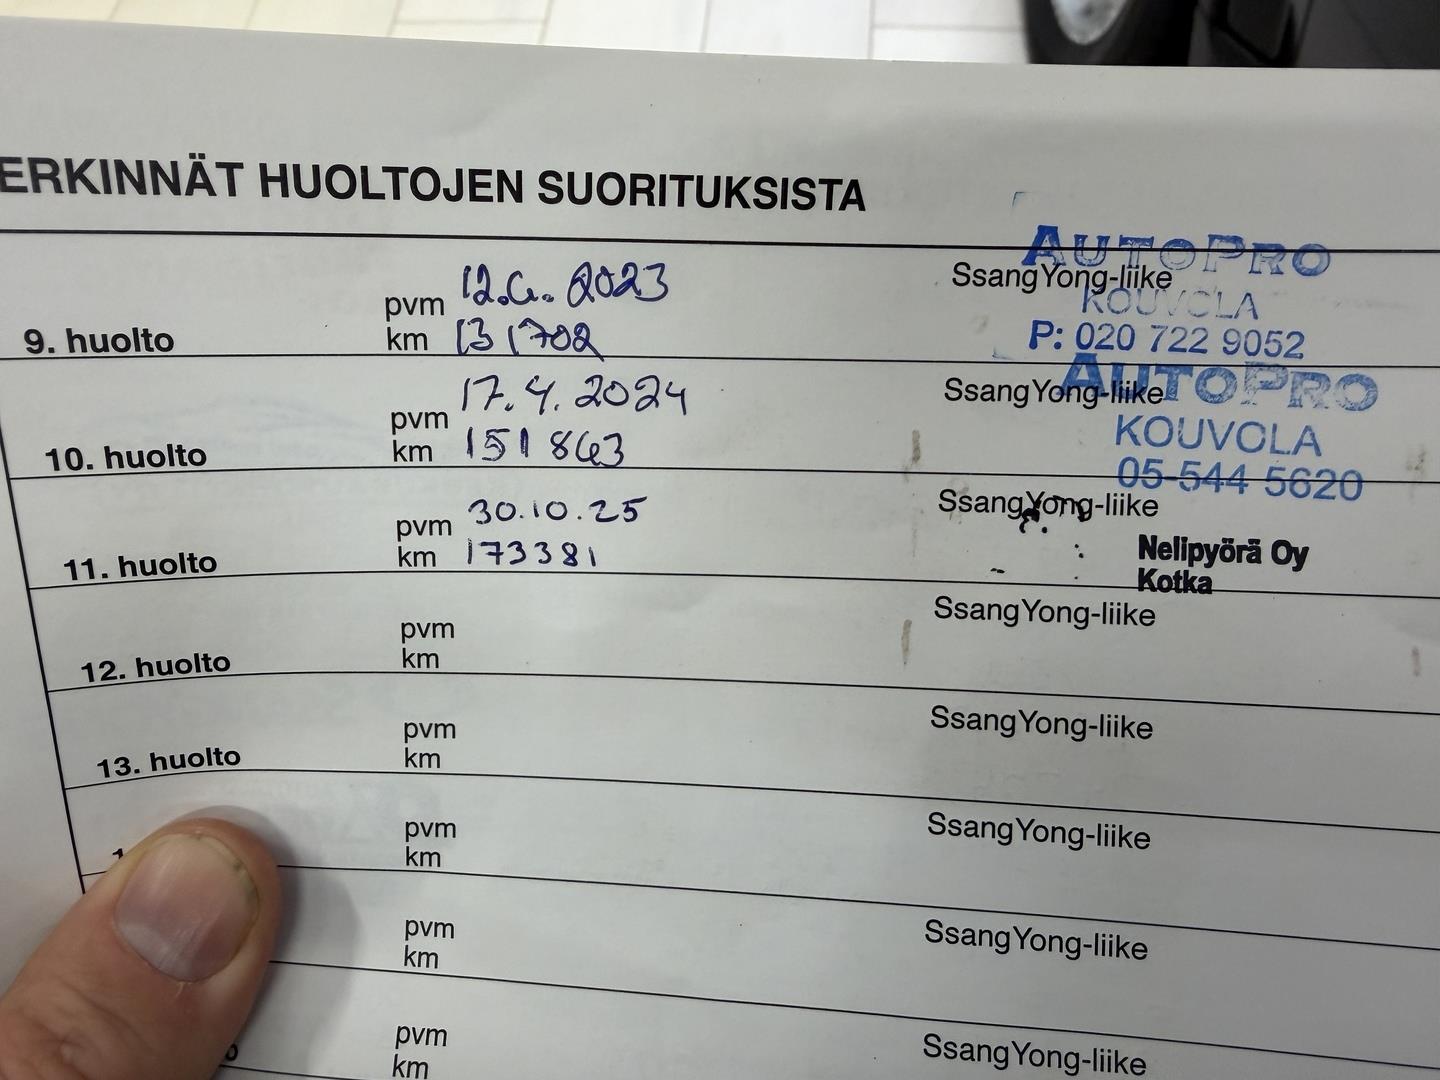 ERKINNÄT HUOLTOJEN SUORITUKSISTA
AUTOPRO
KOUVOLA
P: 020 722 9052
9. huolto pvm 12.6. 2023 SsangYong-liike
km 131702
AUTOPRO
KOUVOLA
05-544 5620
10. huolto pvm 17.4.2024 SsangYong-liike
km 151863
11. huolto pvm 30.10.25 SsangYong-liike
km 173381
Nelipyörä Oy
Kotka
12. huolto pvm SsangYong-liike
km
13. huolto pvm SsangYong-liike
km
pvm SsangYong-liike
km
pvm SsangYong-liike
km
pvm SsangYong-liike
km